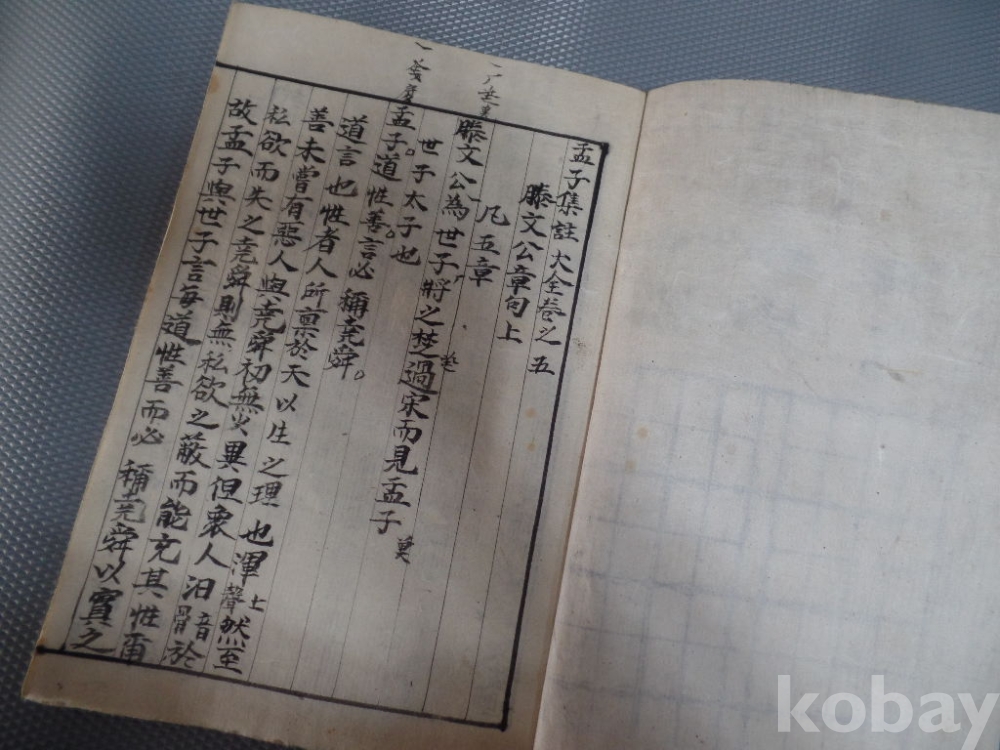 孟子集註大全卷之五
滕文公章句上
凡五章
滕文公為世子將之楚過宋而見孟子
世子太子也
孟子。道性善。言必稱堯舜。
道言也性者人所稟於天以生之理也渾上聲然至
善未嘗有惡人與堯舜初無少異但衆人汨音骨於
私欲而失之堯舜則無私欲之蔽而能充其性爾
故孟子與世子言每道性善而必稱堯舜以實之
kobay